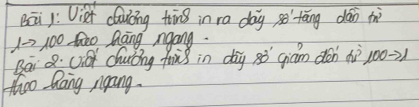 Bài 1: Viết chương trình in ra dãy số tăng dần từ
1→100 theo hàng ngang.
Bài 2: Viết chương trình in dãy số giảm dần từ 100→1
theo hàng ngang.